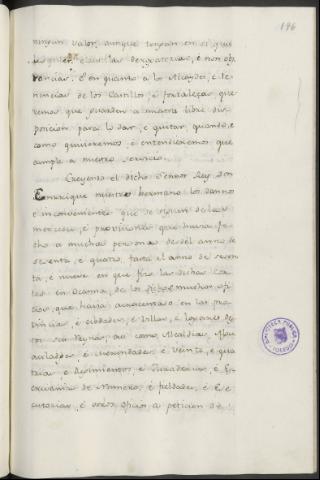 196
ningun valor, aunque tengan en sí qua
lesquier clausulas derogatorias, é non obs
tancias. E en quanto a los Alcaydes, e te
nencias de los Castillos, é fortalezas que
remos que queden a nuestra libre dis
posicion para lo dar, e quitar quando, e
como quisieremos, é entendieremos que
cumple a nuestro servicio.
Creyendo el dicho Señor Rey Don
Enrrique nuestro hermano los dannos
e inconvenientes que se siguen de las
mercedes, é provisiones que havia fe
cho a muchas personas desde el anno de
sesenta, e quatro, fasta el anno de seten
ta, é nueve en que fizo las dichas Cor
tes en Ocanna, de los dichos muchos ofi
cios, que havia acrecentado en las pro
vincias, é cibdades, é Villas, e logares des
tos sus Reynos, asi como Alcaldias, Algu
acilados, é merindades, é Veinte, e qua
trias e Regimientos, e Juraderias, é Es
crivanias de Numero, é fieldades, é Exe
cutorias, é otros oficios a peticion de
BIBLIOTECA PUBLICA
TOLEDO